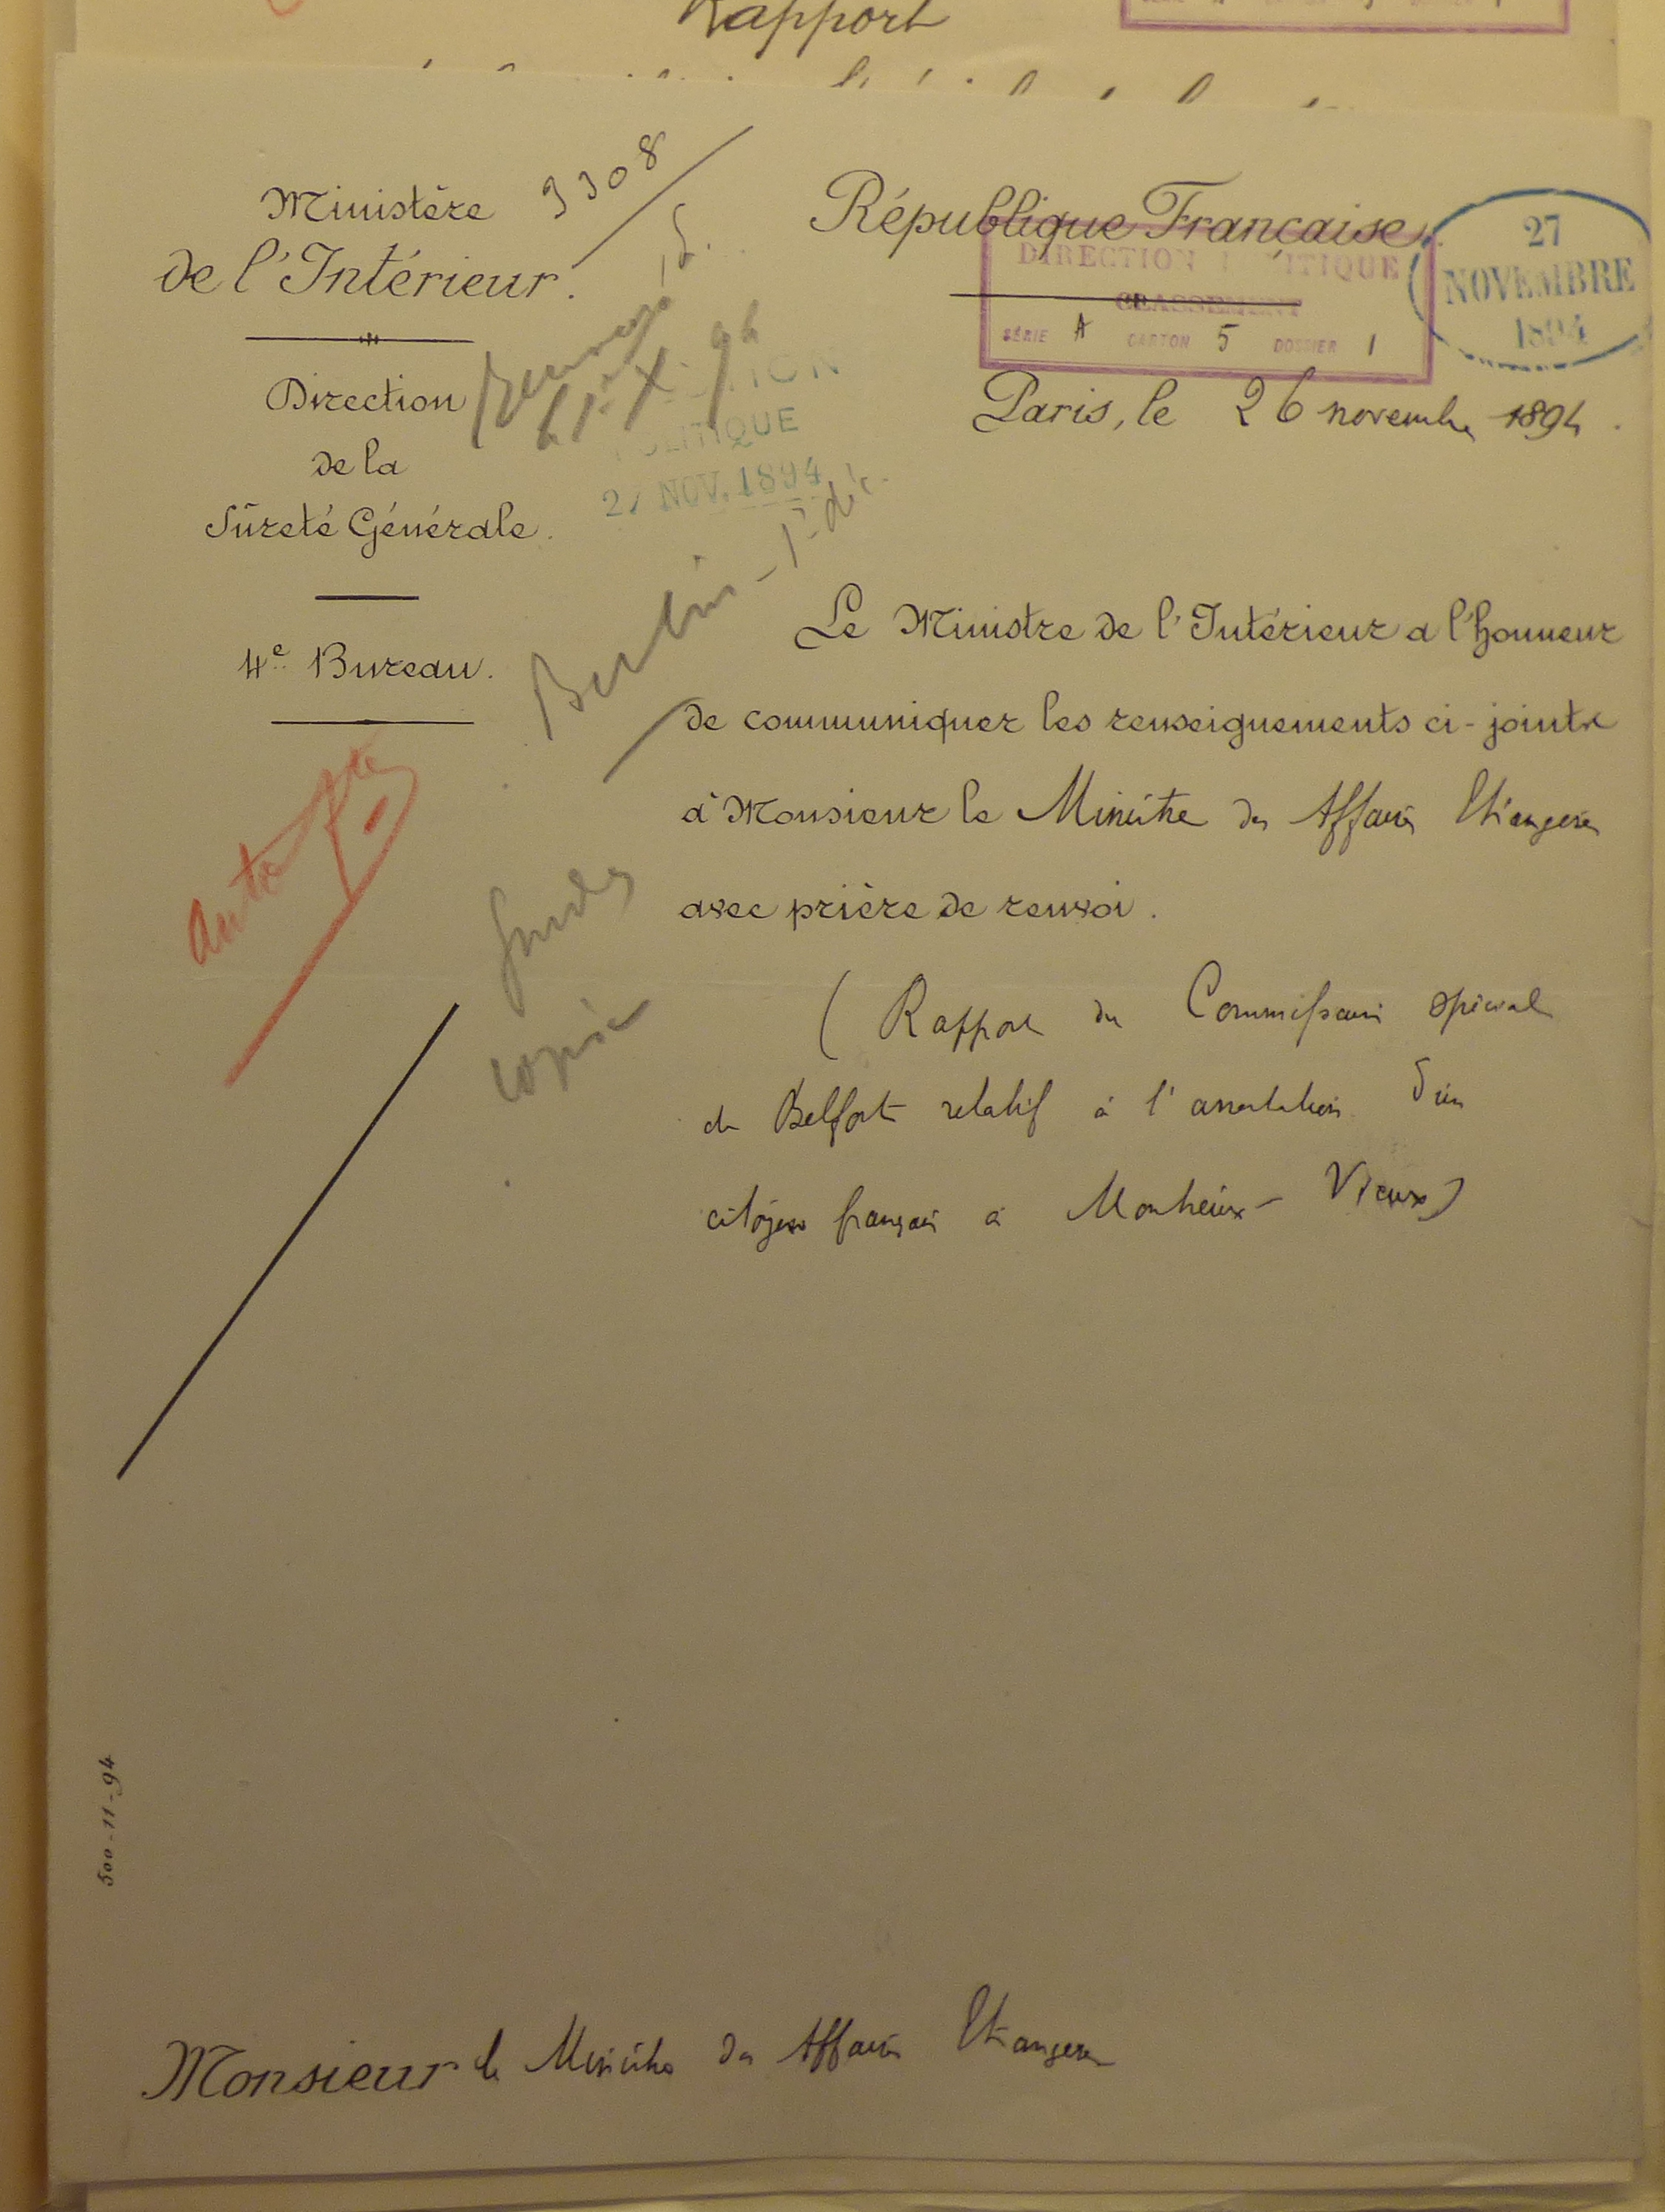 Rapport
Ministère 3308
de l'Intérieur.
Direction
de la
Sûreté Générale.
4e Bureau.
République Française.
DIRECTION POLITIQUE
CLASSEMENT
SÉRIE A CARTON 5 DOSSIER 1
27
NOVEMBRE
1894
POLITIQUE
27 NOV. 1894
Paris, le 26 novembre 1894.
Berlin - 1er déc.
Le Ministre de l'Intérieur a l'honneur
de communiquer les renseignements ci-joints
à Monsieur le Ministre des Affaires Etrangères
avec prière de renvoi.
(Rapport du Commissaire spécial
de Belfort relatif à l'arrestation d'un
citoyen français à Montreux-Vieux)
copie
500-11-94
Monsieur le Ministre des Affaires Etrangères